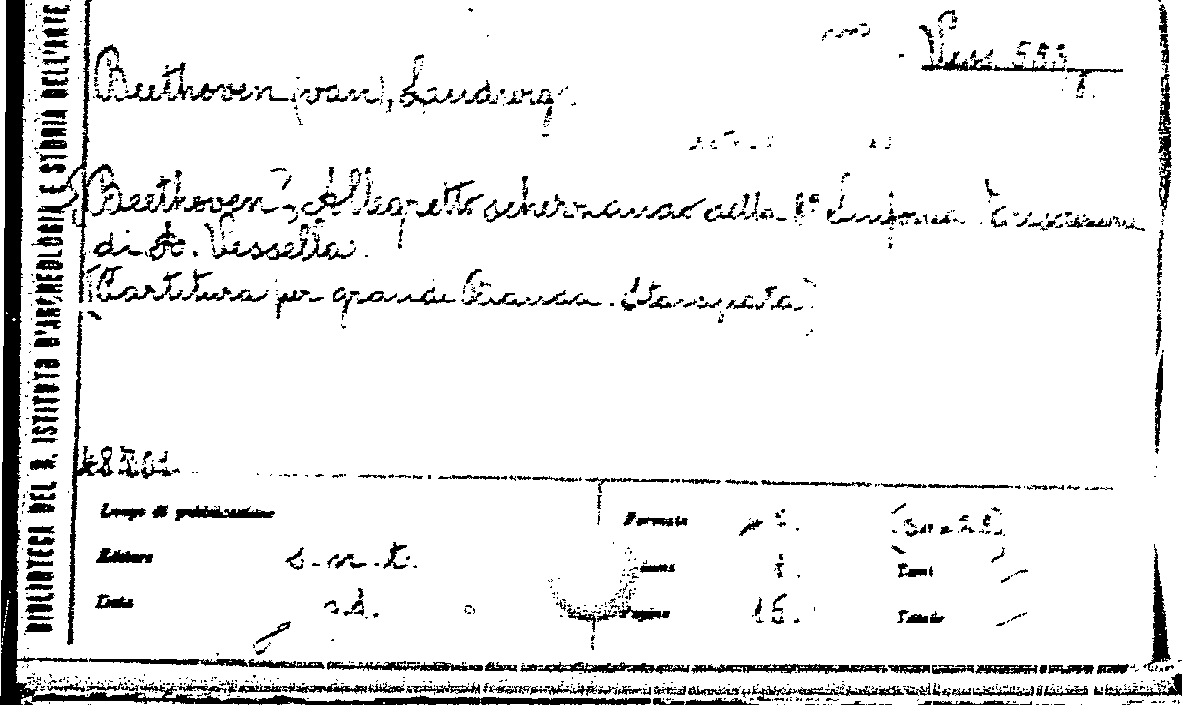 BIBLIOTECA DEL R. ISTITUTO D'ARCHEOLOGIA E STORIA DELL'ARTE
Vess. 553
Beethoven (van), Ludwig.
[Beethoven], Allegretto scherzando della 8ª Sinfonia. Trascrizione
di A. Vessella.
[Partitura per grande Banda. Stampata]
Luogo di pubblicazione
Formato
Editore s.n.t.
Volumi 1.
Tomi
Data s.d.
Pagine 16.
Tavole